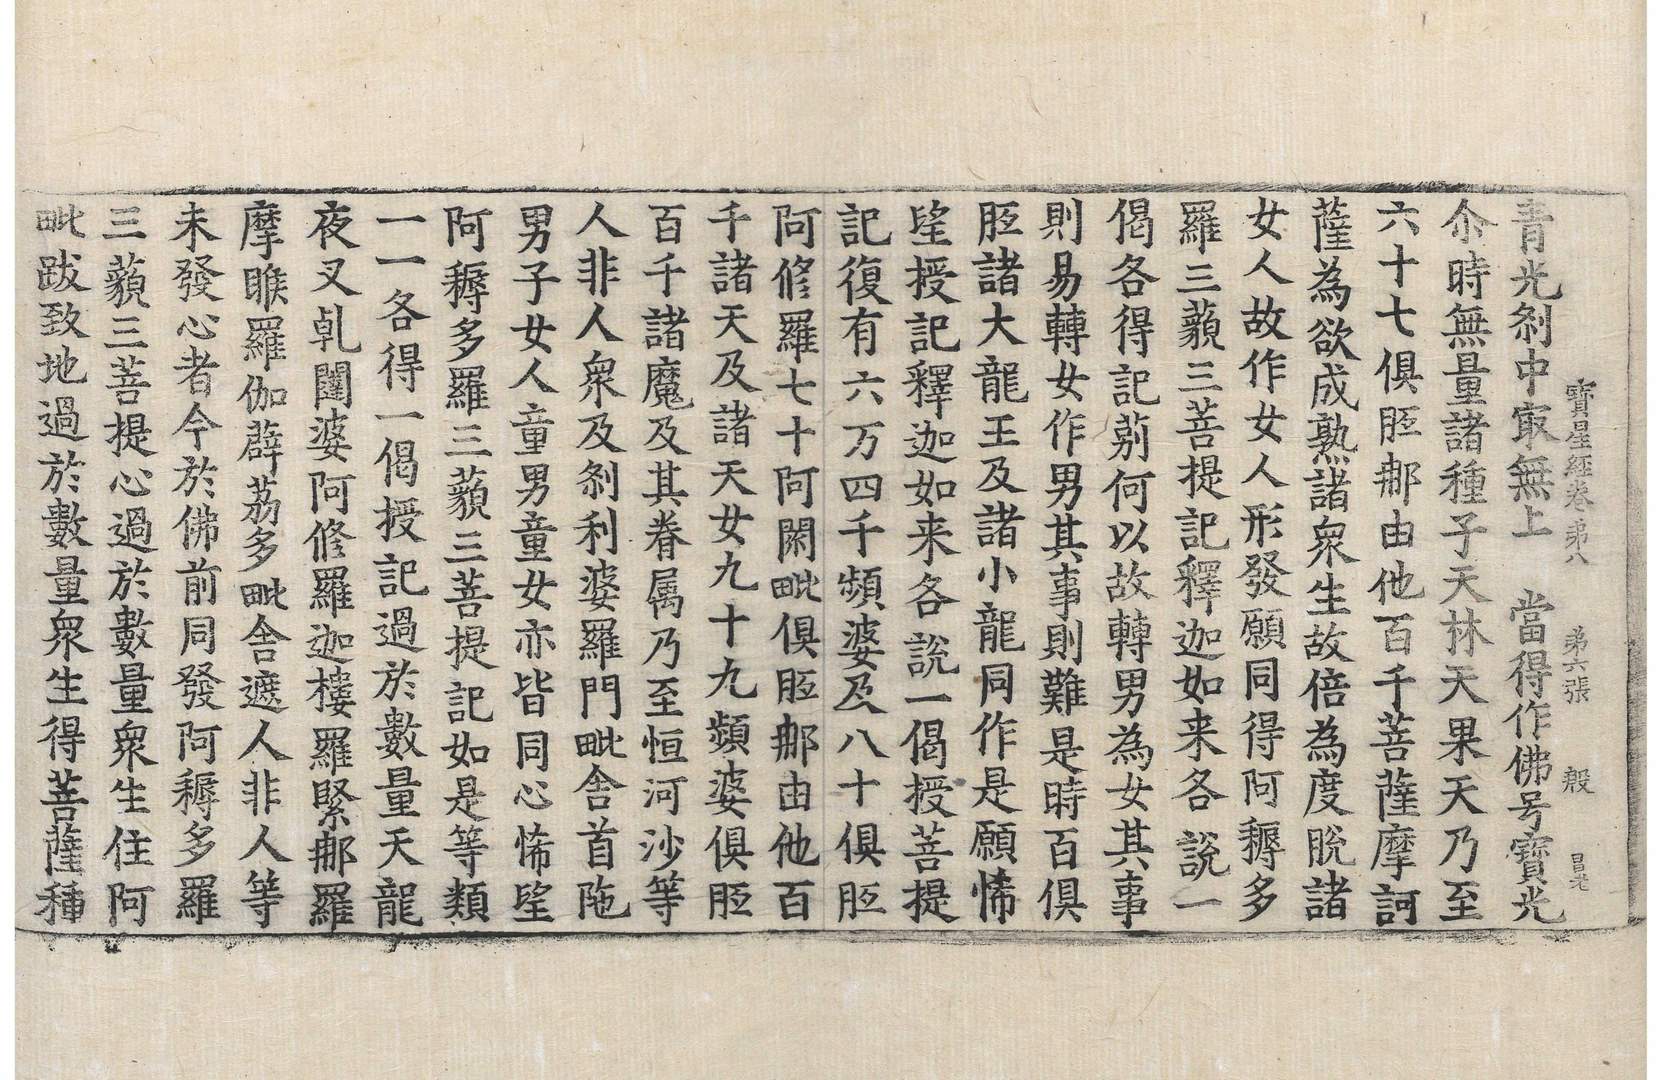 寶星經卷苐八　苐六張　殷　昌老
青光刹中㝡無上　當得作佛号寶光
尒時無量諸種子天林天果天乃至
六十七俱胝那由他百千菩薩摩訶
薩為欲成熟諸衆生故倍為度脫諸
女人故作女人形發願同得阿耨多
羅三藐三菩提記釋迦如来各說一
偈各得記莂何以故轉男為女其事
則易轉女作男其事則難是時百俱
胝諸大龍王及諸小龍同作是願悕
望授記釋迦如来各說一偈授菩提
記復有六万四千頻婆及八十俱胝
阿修羅七十阿閦毗俱胝那由他百
千諸天及諸天女九十九頻婆俱胝
百千諸魔及其眷属乃至恒河沙等
人非人衆及刹利婆羅門毗舍首陁
男子女人童男童女亦皆同心悕望
阿耨多羅三藐三菩提記如是等類
一一各得一偈授記過於數量天龍
夜叉乹闥婆阿修羅迦樓羅緊那羅
摩睺羅伽薜荔多毗舍遮人非人等
未發心者今於佛前同發阿耨多羅
三藐三菩提心過於數量衆生住阿
毗跋致地過於數量衆生得菩薩種